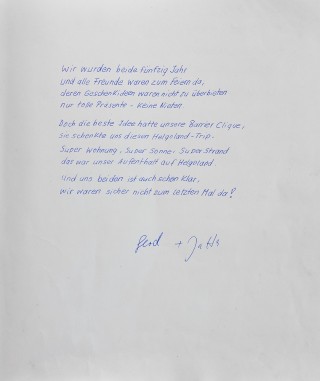 Wir wurden beide fünfzig Jahr
und alle Freunde waren zum feiern da,
deren Geschenkideen waren nicht zu überbieten
nur tolle Präsente - keine Nieten.
Doch die beste Idee hatte unsere Clique,
sie schenkte uns diesen Helgoland-Trip.
Super Wohnung, Super Sonne - Super Strand
das war unser Aufenthalt auf Helgoland.
Und uns beiden ist auch schon klar,
wir waren sicher nicht zum letzten Mal da!
Gerd +